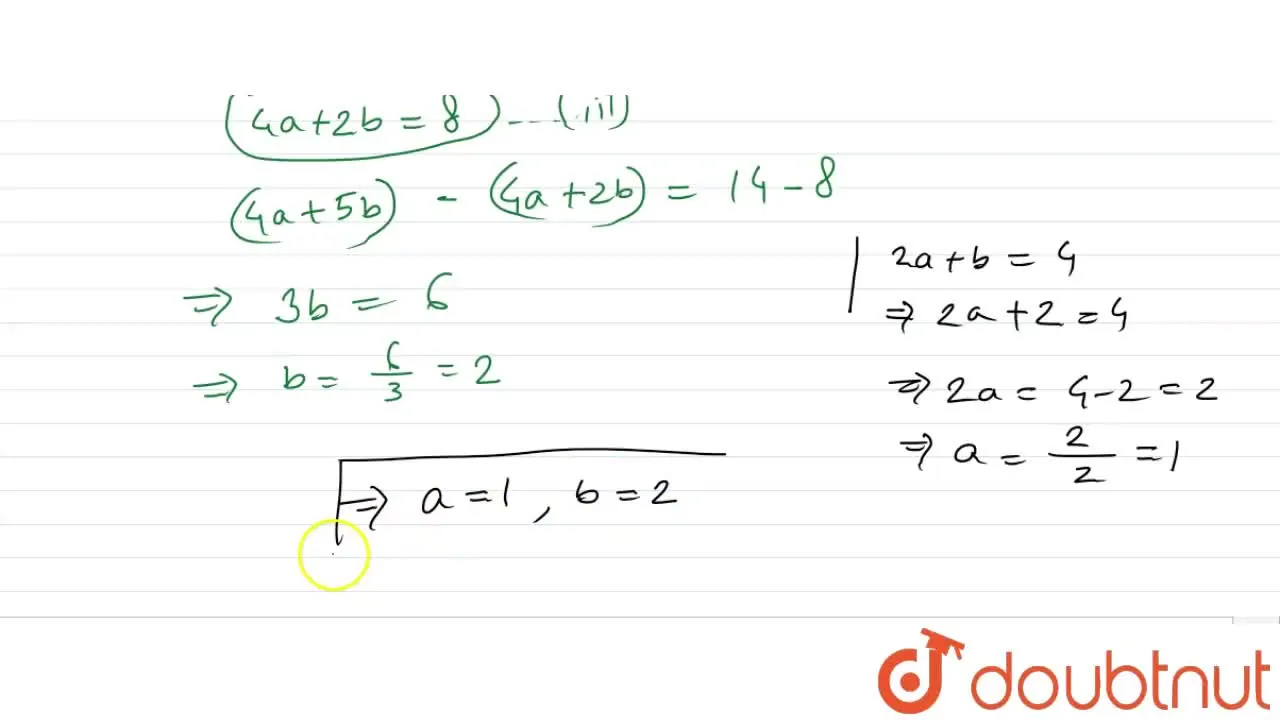 (4a+2b=8) --- (iii)
(4a+5b) - (4a+2b) = 14-8
⇒ 3b = 6
⇒ b = 6/3 = 2
⇒ a=1, b=2
2a+b=4
⇒ 2a+2=4
⇒ 2a= 4-2=2
⇒ a= 2/2 =1
doubtnut